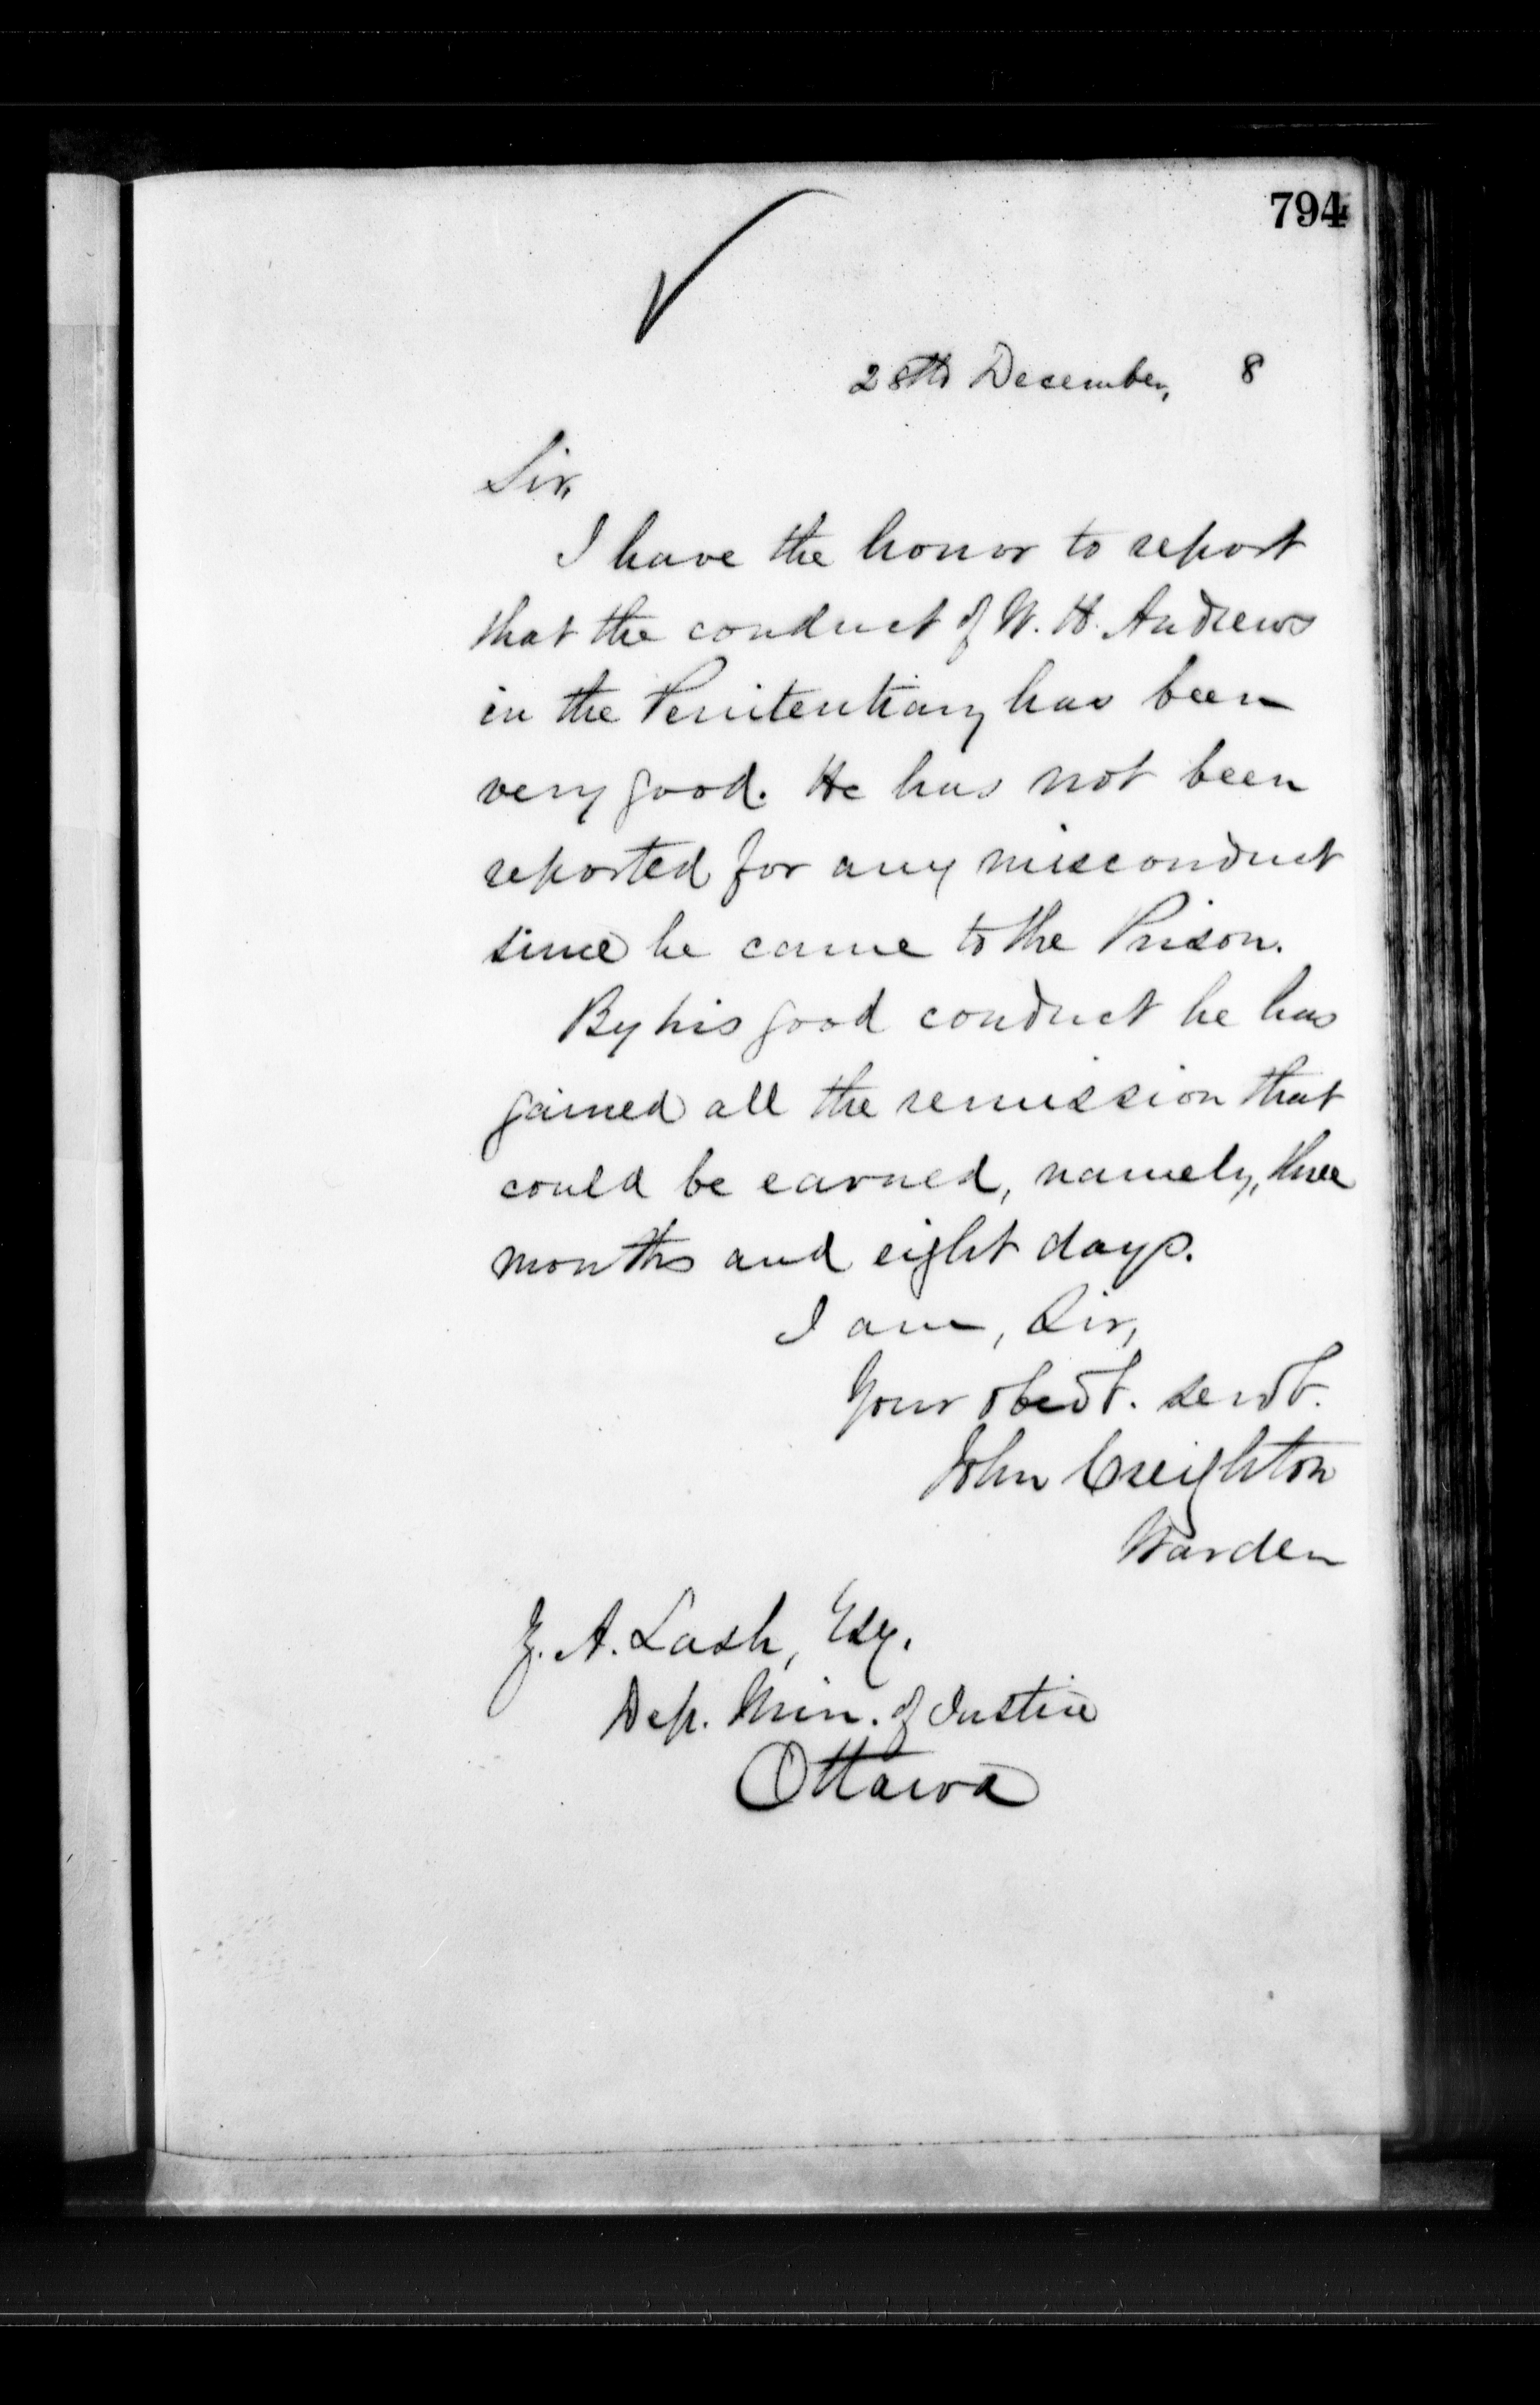 794
28th December, 8
Sir,
I have the honor to report
that the conduct of W. H. Andrews
in the Penitentiary has been
very good. He has not been
reported for any misconduct
since he came to the Prison.
By his good conduct he has
gained all the remission that
could be earned, namely, three
months and eight days.
I am, Sir,
Your obedt. servt.
John Creighton
Warden
Z. A. Lash, Esq.
Dep. Min. of Justice
Ottawa